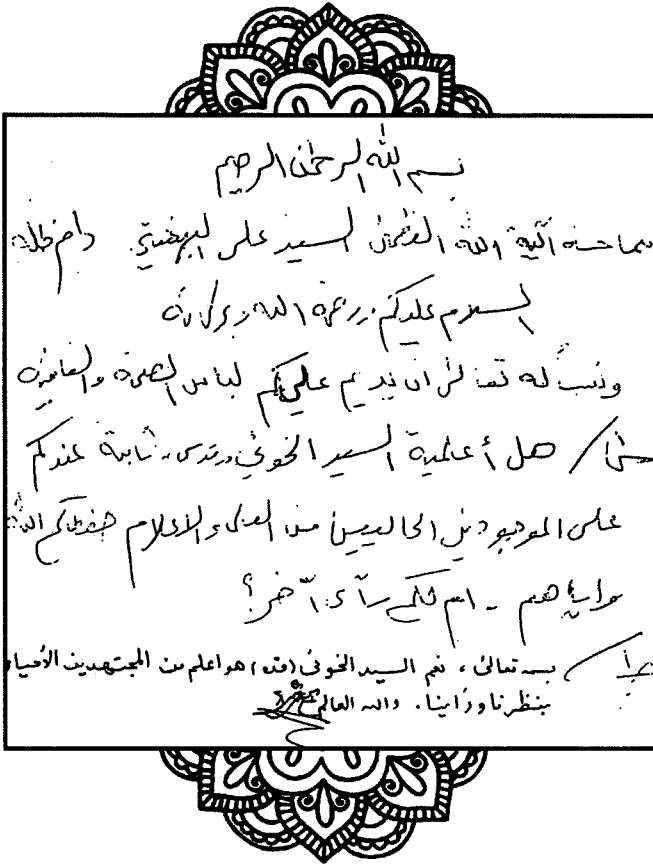 بسم الله الرحمن الرحيم
سماحة آية الله العظمى السيد علي البهشتي دام ظله
السلام عليكم ورحمة الله وبركاته
ونسأله تعالى ان يديم عليكم لباس الصحة والعافية
س١/ هل أعلمية السيد الخوئي «قدس» ثابتة عندكم
على الموجودين الحاليين من العلماء الاعلام حفظكم الله
واياهم - ام لكم رأي آخر؟
ج١/ بسمه تعالى، نعم السيد الخوئي (قده) هو اعلم من المجتهدين الأحياء
بنظرنا ورأينا. والله العالم